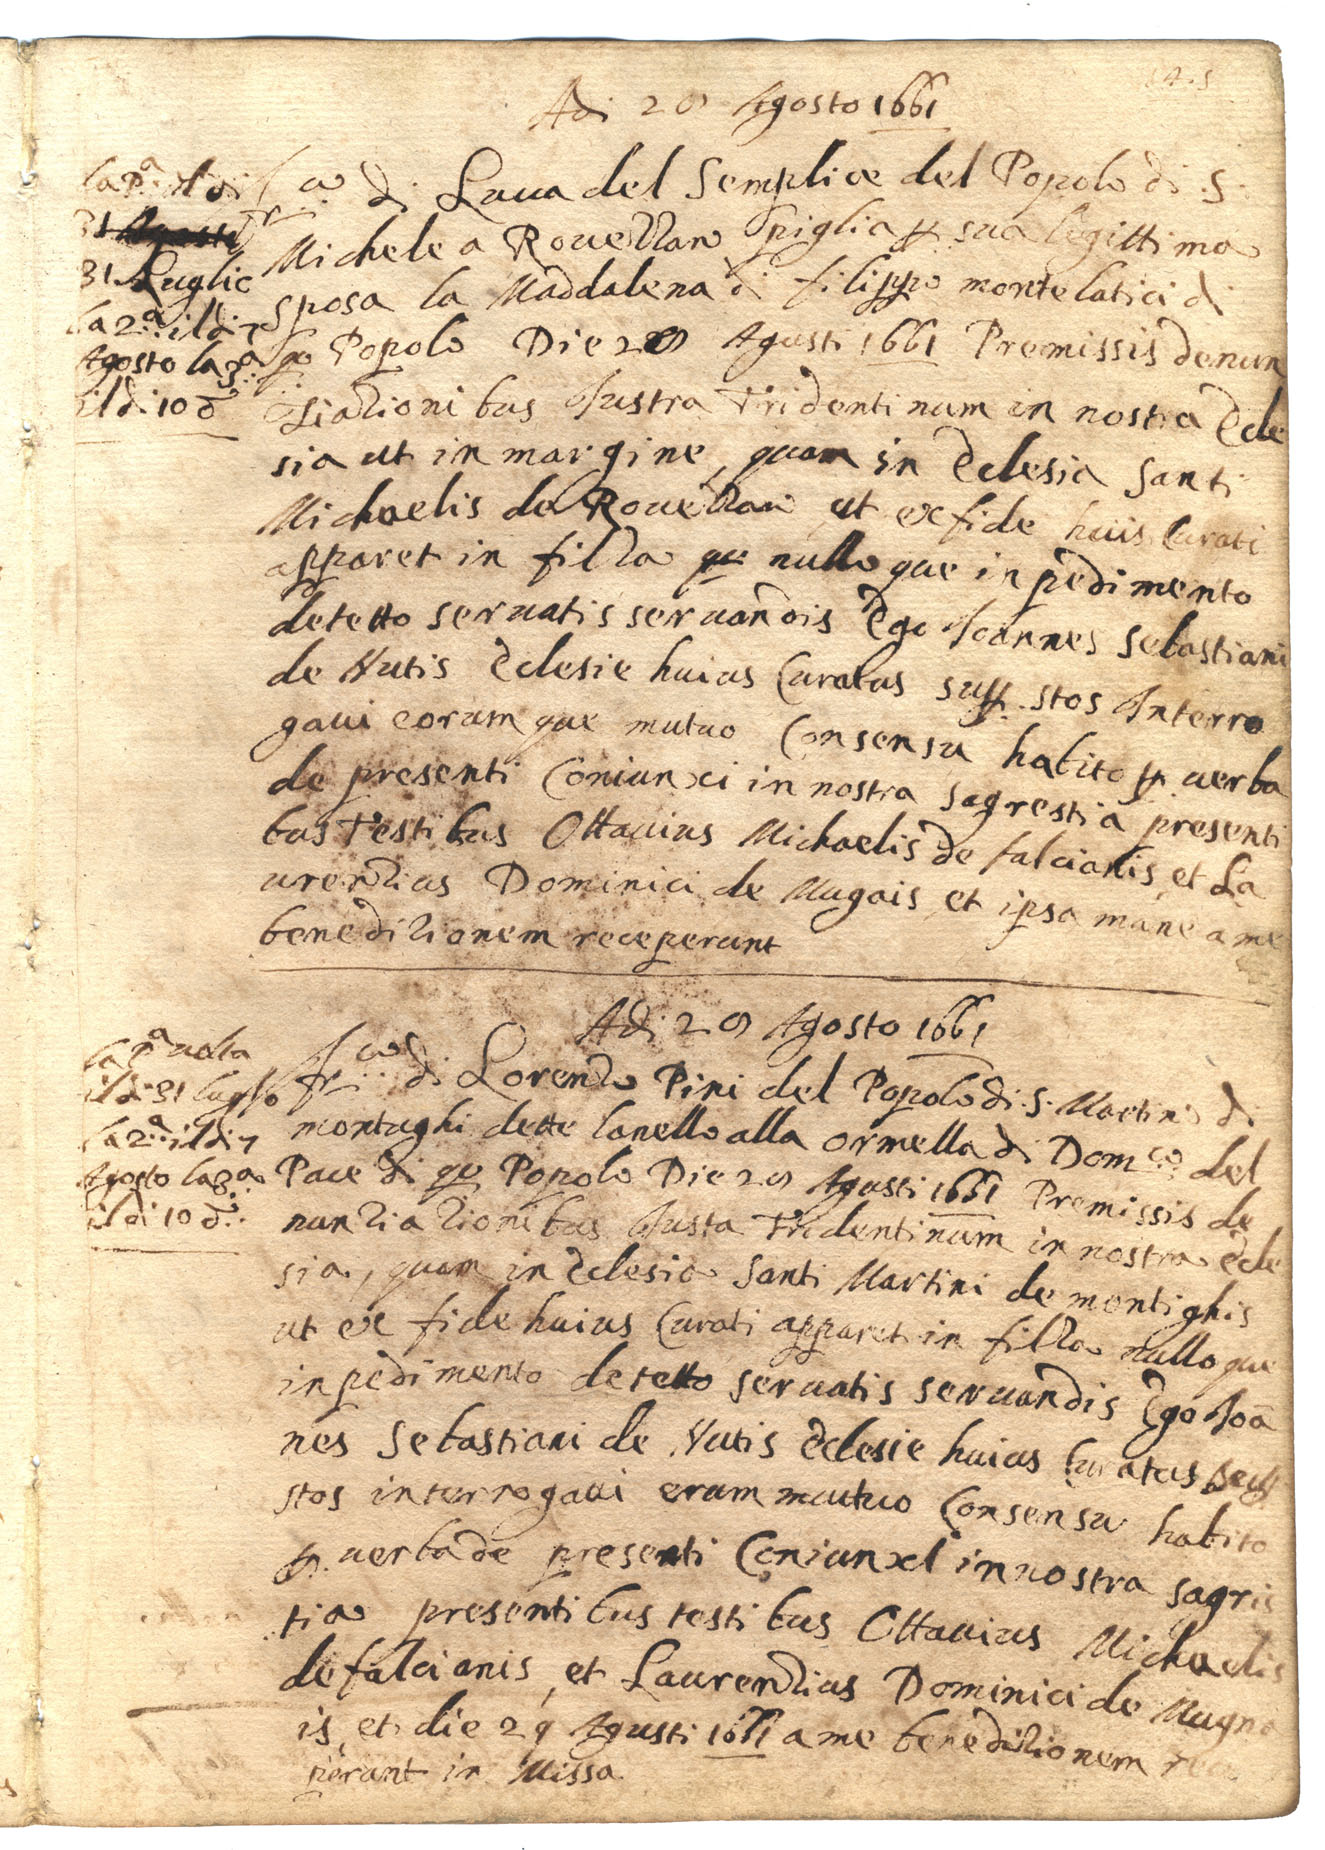 Adi 28 Agosto 1661
la P.a il di
31 Luglio
la 2.a il di 7
Agosto la 3.a
il di 10 d.o
Fr.co di Luca del Semplice del Popolo di S.
Michele a Rouezzano piglia p sua legittima
sposa la Maddalena di filippo montelatici di
qo Popolo Die 28 Agusti 1661 Premissis denun
tiationibus Justra Tridentinum in nostra Ecle
sia ut in margine, quam in Eclesia Santi
Michaelis de Rouezzano ut ex fide huis Curati
apparet in filza nullo que inpedimento
detetto seruatis seruandis Ego Joannes Sebastiani
de Nutis Eclesie huius Curatus supp.stos Interro
gaui eorum que mutuo Consensu habito p. uerba
de presenti Coniunxi in nostra sagrestia presenti
bus Testibus Ottauius Michaelis de falcianis, et La
urentius Dominici de Mugnais, et ipsa mane a me
beneditionem receperunt
Adi 28 Agosto 1661
la P.a uolta
il di 31 luglio
la 2.a il di 7
Agosto la 3.a
il di 10 d.o
Fr.co di Lorenzo Pini del Popolo di S. Martino di
montughi dette l'anello alla ormella di Dom.co del
Pace di qo Popolo Die 28 Agusti 1661 Premissis de
nuntiationibus Justa Tridentinum in nostra Ecle
sia, quam in Eclesia Santi Martini de montighis
ut ex fide huius Curati apparet in filza nullo que
inpedimento detetto seruatis seruandis Ego Joā
nes Sebastiani de Nutis Eclesie huius Curatus supp
stos interrogaui erum mutuo Consensu habito
p. uerba de presenti Coniunxi in nostra sagris
tia presentibus testibus Ottauius Michaelis
de falcianis, et Laurentius Dominici de Mugna
is, et die 29 Agusti 1661 a me beneditionem rece
perunt in Missa